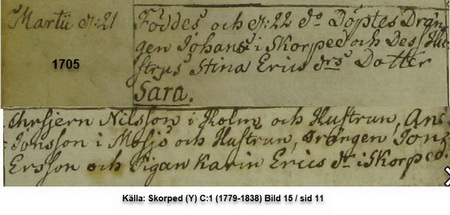 Martii d: 21
1705
Föddes och d: 22 d:o Döptes Drän-
gen Johans i Skorped och Des Hu-
strus Stina Erics drs Dotter
Sara.
Nilsson i Holm och Hustrun,
Jonsson i Mosjö och Hustrun, Drängen Jon
Ersson och Pigan Karin Erics dr i Skorped.
Källa: Skorped (Y) C:1 (1779-1838) Bild 15 / sid 11